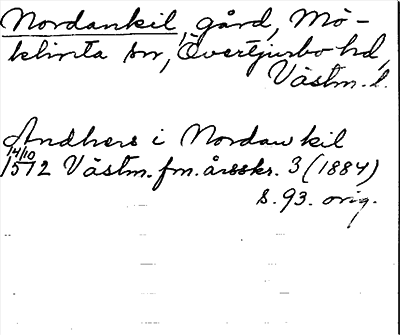 Nordankil, gård, Mö-
klinta sn, Övertjurbo hd,
Västm. l.
Andhers i Nordankil
14/10
1512 Västm. fm. årsskr. 3 (1884)
s. 93. orig.